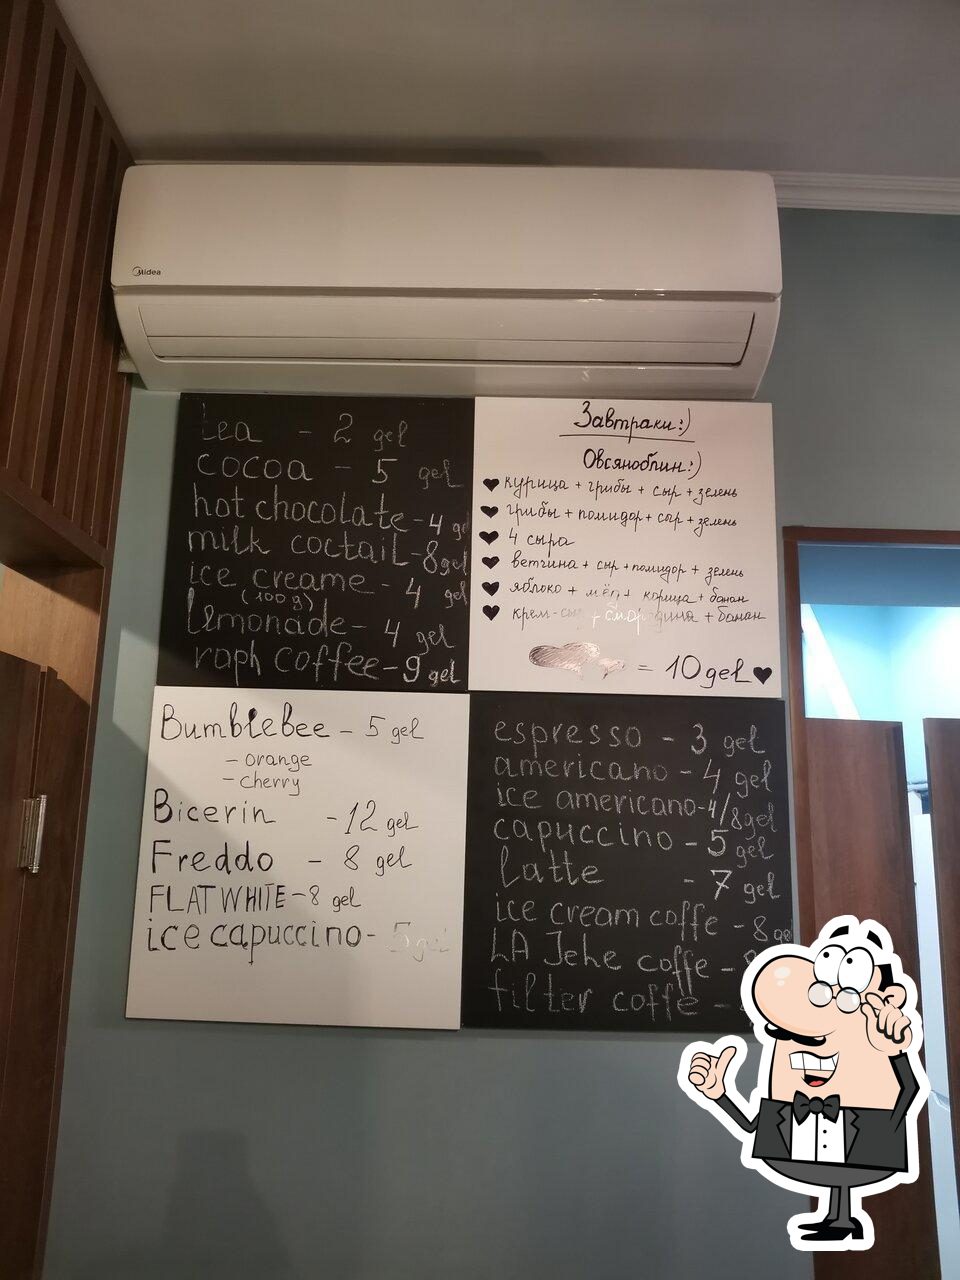 Midea
tea - 2 gel
cocoa - 5 gel
hot chocolate - 4 ge
milk coctail - 8 gel
ice creame - 4 gel
(100g)
lemonade - 4 gel
raph coffee - 9 gel
Завтраки:)
Овсяноблин:)
курица + грибы + сыр + зелень
грибы + помидор + сыр + зелень
4 сыра
ветчина + сыр + помидор + зелень
яблоко + мёд + корица + банан
крем-сыр + смородина + банан
= 10 gel
Bumblebee - 5 gel
- orange
- cherry
Bicerin - 12 gel
Freddo - 8 gel
FLAT WHITE - 8 gel
ice capuccino - 5 gel
espresso - 3 gel
americano - 4 gel
ice americano - 4/8 gel
capuccino - 5 gel
Latte - 7 gel
ice cream coffe - 8 ge
LA Jehe coffe -
filter coffe -